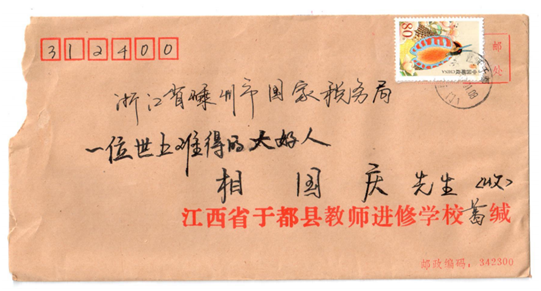 312400
80
邮
浙江省嵊州市国家税务局
一位世上难得的大好人
相国庆 先生 <收>
江西省于都县教师进修学校 葛 缄
邮政编码:342300